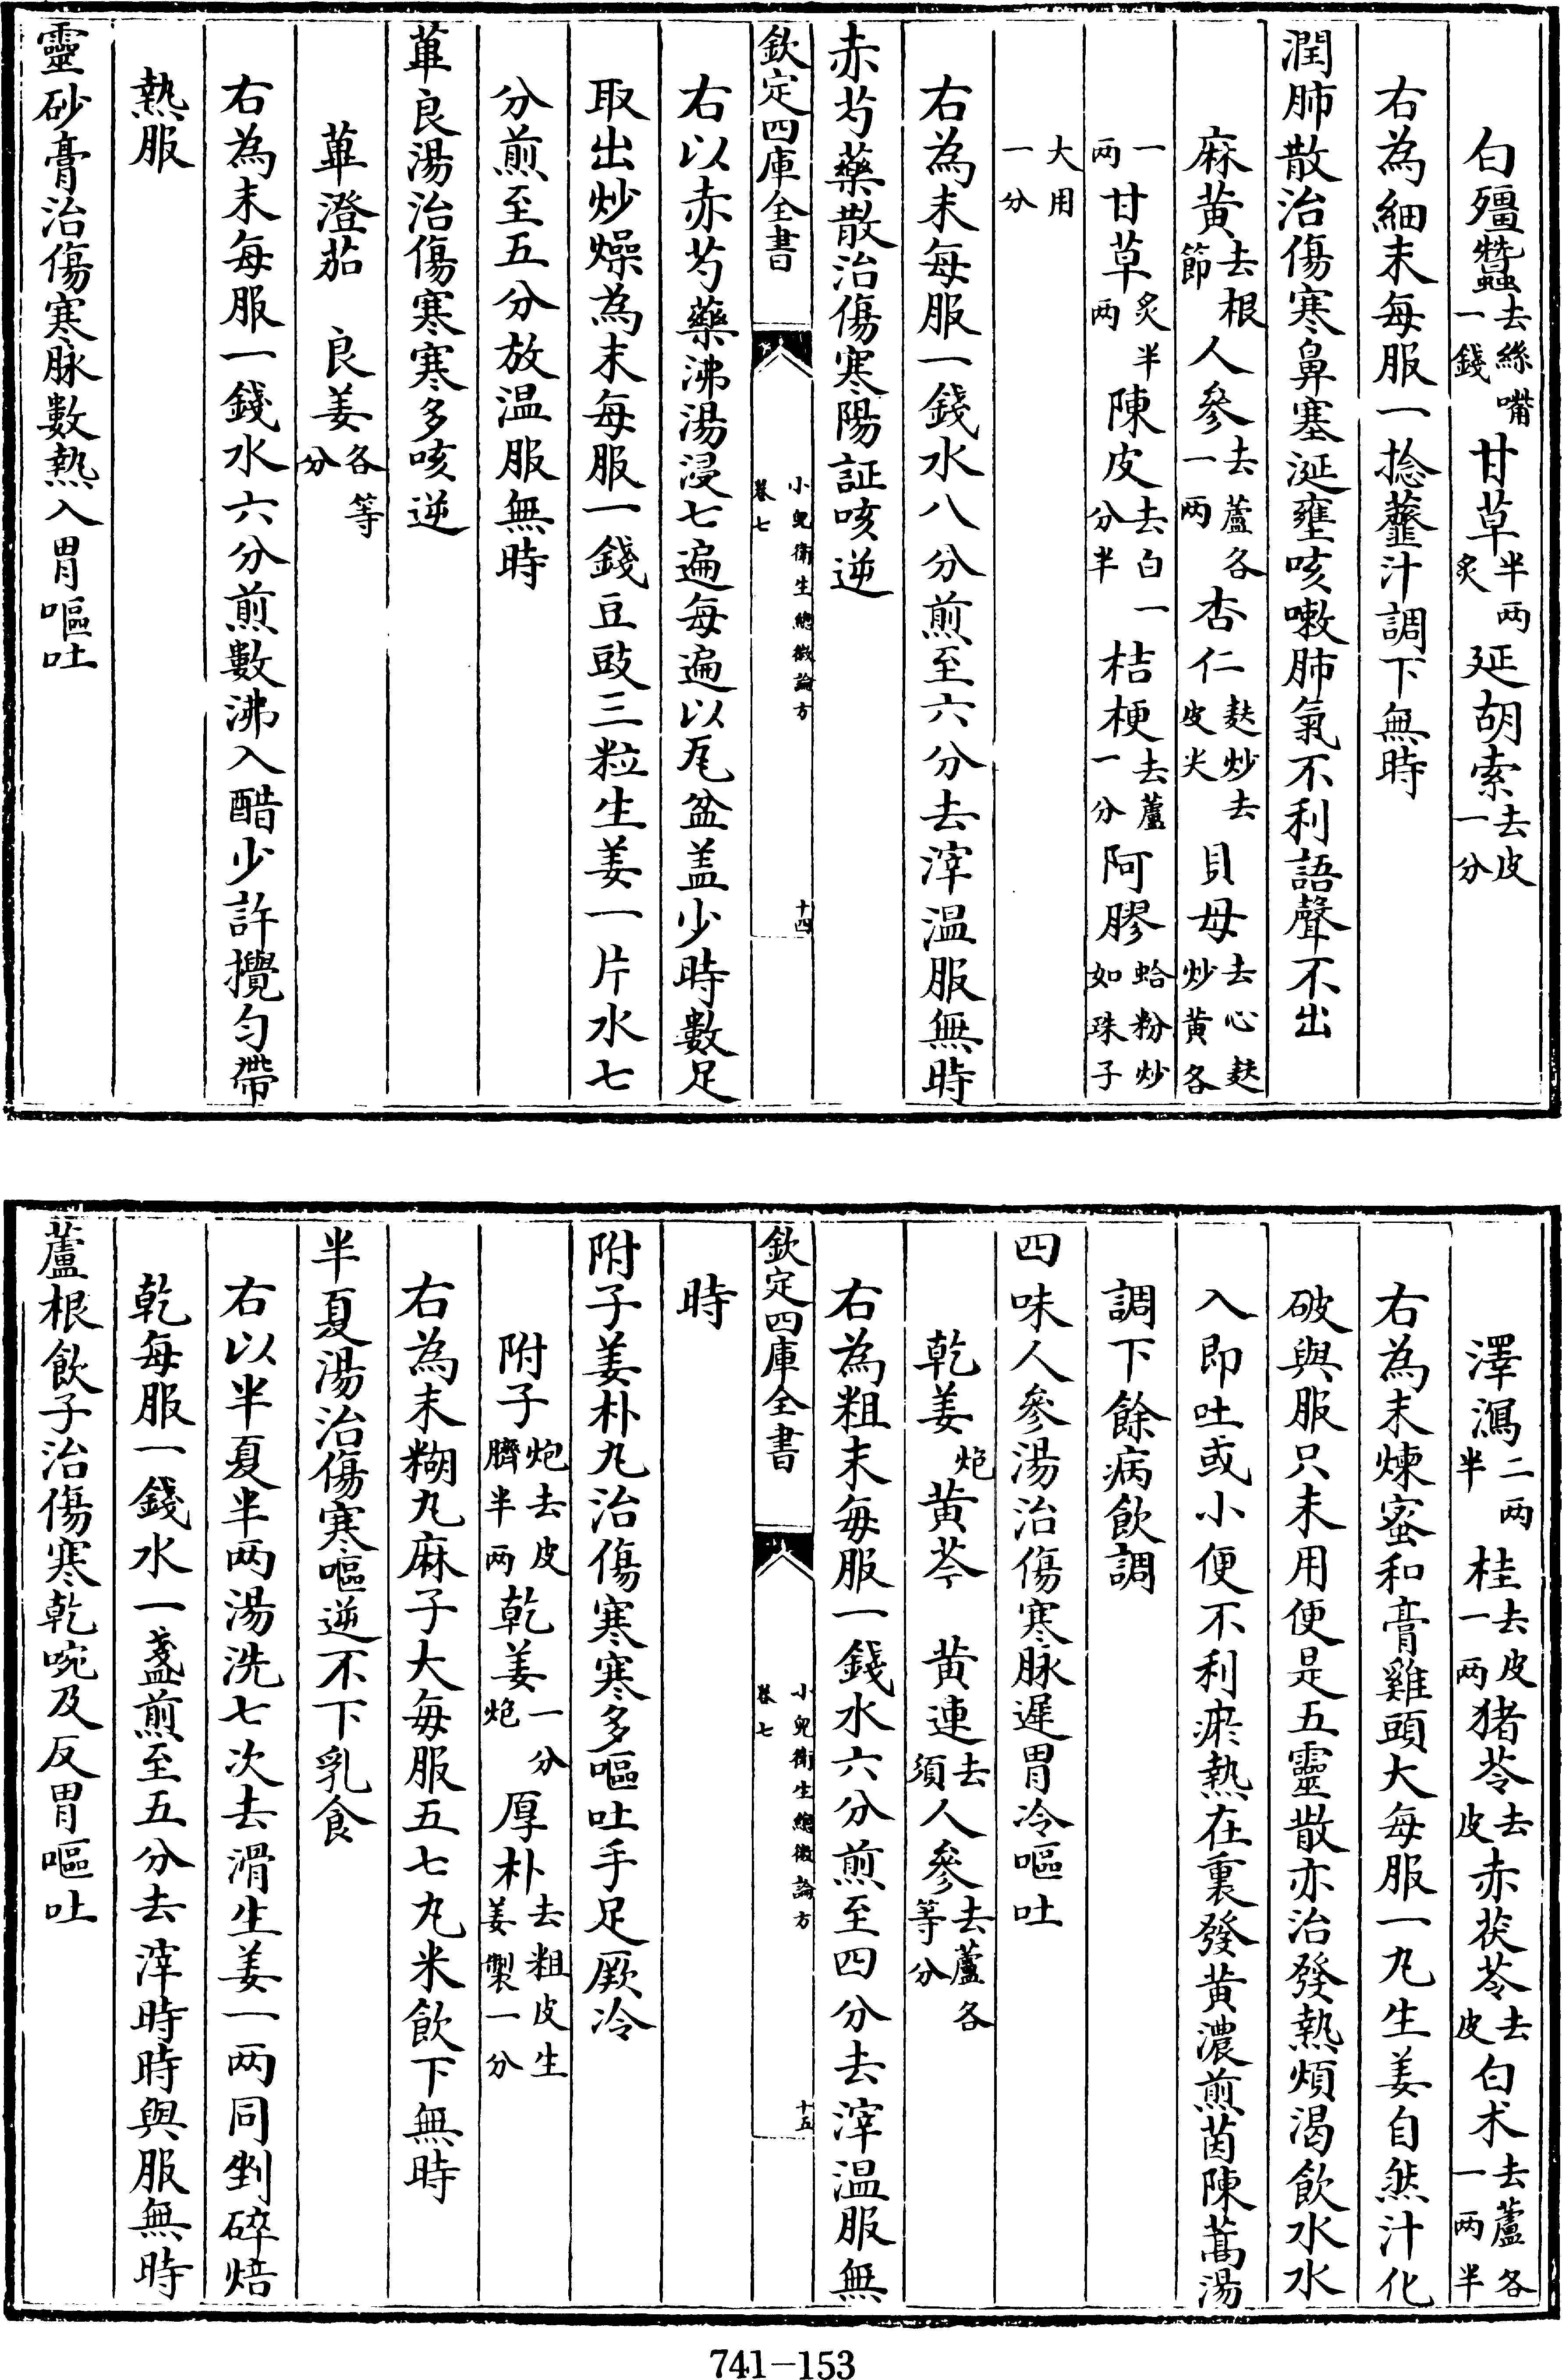 白殭蠶去絲嘴一錢甘草半兩炙延胡索去皮一分
右為細末每服一捻虀汁調下無時
潤肺散治傷寒鼻塞涎壅咳嗽肺氣不利語聲不出
麻黄去根節人參去蘆各一兩杏仁麩炒去皮尖貝母去心麩炒黄各
一兩甘草炙半兩陳皮去白一分半桔梗去蘆一分阿膠蛤粉炒如珠子
大用一分
右為末每服一錢水八分煎至六分去滓温服無時
赤芍藥散治傷寒陽証咳逆
欽定四庫全書
小兒衛生總微論方
卷七
十四
右以赤芍藥沸湯浸七遍每遍以瓦盆盖少時數足
取出炒燥為末每服一錢豆豉三粒生姜一片水七
分煎至五分放温服無時
蓽良湯治傷寒寒多咳逆
蓽澄茄 良姜各等分
右為末每服一錢水六分煎數沸入醋少許攪勻帶
熱服
靈砂膏治傷寒脉數熱入胃嘔吐
澤瀉二兩半桂去皮一兩猪苓去皮赤茯苓去皮白术去蘆各一兩半
右為末煉蜜和膏雞頭大每服一丸生姜自然汁化
破與服只末用便是五靈散亦治發熱煩渴飲水水
入即吐或小便不利瘀熱在裏發黄濃煎茵陳蒿湯
調下餘病飲調
四味人參湯治傷寒脉遲胃冷嘔吐
乾姜炮黄芩 黄連去須人參去蘆各等分
右為粗末每服一錢水六分煎至四分去滓温服無
欽定四庫全書
小兒衛生總微論方
卷七
十五
時
附子姜朴丸治傷寒寒多嘔吐手足厥冷
附子炮去皮臍半兩乾姜一分炮厚朴去粗皮生姜製一分
右為末糊丸麻子大每服五七丸米飲下無時
半夏湯治傷寒嘔逆不下乳食
右以半夏半兩湯洗七次去滑生姜一兩同剉碎焙
乾每服一錢水一盞煎至五分去滓時時與服無時
蘆根飲子治傷寒乾啘及反胃嘔吐
741-153